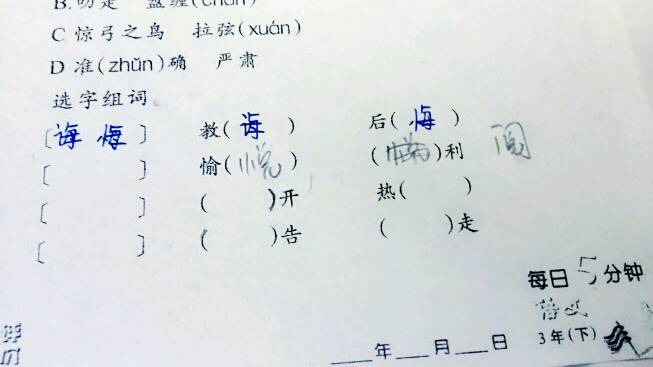 B.叨是 盘缠(chán)
C 惊弓之鸟 拉弦(xuán)
D 准(zhǔn)确 严肃
选字组词。
[诲 悔] 教(诲) 后(悔)
[ ] 愉(悦) ( )利 阅
[ ] ( )开 热( )
[ ] ( )告 ( )走
每日5分钟
语文
3年(下)
___年___月___日